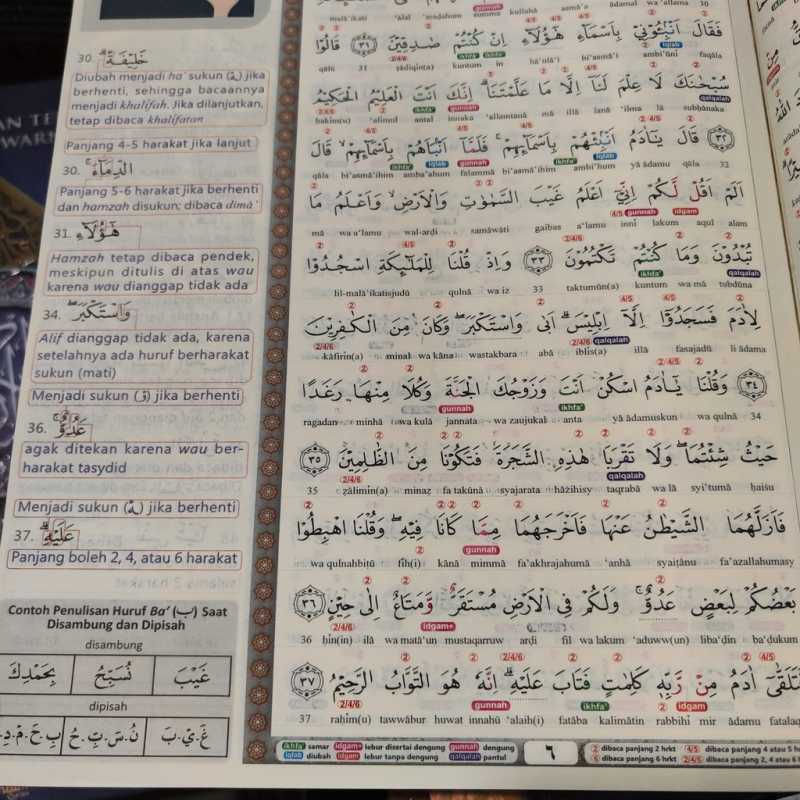 30. خَلِيْفَةً ۗ
Diubah menjadi ha' sukun (ـهْ) jika
berhenti, sehingga bacaannya
menjadi khalifah. Jika dilanjutkan,
tetap dibaca khalifatan
Panjang 4-5 harakat jika lanjut
30. الدِّمَاۤءَۚ
Panjang 5-6 harakat jika berhenti
dan hamzah disukun; dibaca dimā'
31. هٰٓؤُلَاۤءِ
Hamzah tetap dibaca pendek,
meskipun ditulis di atas wau
karena wau dianggap tidak ada
34. وَاسْتَكْبَرَۖ
Alif dianggap tidak ada, karena
setelahnya ada huruf berharakat
sukun (mati)
Menjadi sukun (رْ) jika berhenti
36. عَدُوٌّ ۚ
agak ditekan karena wau ber-
harakat tasydid
Menjadi sukun (ـهْ) jika berhenti
37. عَلَيْهِ ۗ
Panjang boleh 2, 4, atau 6 harakat
Contoh Penulisan Huruf Ba' (ب) Saat
Disambung dan Dipisah
disambung
غَيْبَ نُسَبِّحُ بِحَمْدِكَ
dipisah
غَ.يْ.بَ نُ.سَ.بِّ.حُ بِ.حَ.مْ.دِ.
malā'ikati 'alal 'araḍahum summa kullahā asmā'a ādamal wa'allama 30
فَقَالَ اَنْۢبِـُٔوْنِيْ بِاَسْمَاۤءِ هٰٓؤُلَاۤءِ اِنْ كُنْتُمْ صٰدِقِيْنَ ۝٣١ قَالُوْا
qālū 31 ṣādiqīn(a) kuntum in hā'ulā'i bi'asmā'i ambi'ūnī faqāla
سُبْحٰنَكَ لَا عِلْمَ لَنَآ اِلَّا مَا عَلَّمْتَنَا ۗاِنَّكَ اَنْتَ الْعَلِيْمُ الْحَكِيْمُ
ḥakīm(u) 'alīmul antal innaka 'allamtanā mā illā lanā 'ilma lā subḥānaka
۝٣٢ قَالَ يٰٓاٰدَمُ اَنْۢبِئْهُمْ بِاَسْمَاۤىِٕهِمْ ۚ فَلَمَّآ اَنْۢبَاَهُمْ بِاَسْمَاۤىِٕهِمْۙ قَالَ
qāla bi'asmā'ihim amba'ahum falammā bi'asmā'ihim ambi'hum yā ādamu qāla 32
اَلَمْ اَقُلْ لَّكُمْ اِنِّيْٓ اَعْلَمُ غَيْبَ السَّمٰوٰتِ وَالْاَرْضِۙ وَاَعْلَمُ مَا
mā wa a'lamu wal-arḍi samāwāti gaibas a'lamu innī lakum aqul alam
تُبْدُوْنَ وَمَا كُنْتُمْ تَكْتُمُوْنَ ۝٣٣ وَاِذْ قُلْنَا لِلْمَلٰۤىِٕكَةِ اسْجُدُوْا
lil-malā'ikatisjudū qulnā wa iz 33 taktumūn(a) kuntum wa mā tubdūna
لِاٰدَمَ فَسَجَدُوْٓا اِلَّآ اِبْلِيْسَۗ اَبٰى وَاسْتَكْبَرَۖ وَكَانَ مِنَ الْكٰفِرِيْنَ
kāfirīn(a) minal wa kāna wastakbara abā iblīs(a) illā fasajadū li ādama
۝٣٤ وَقُلْنَا يٰٓاٰدَمُ اسْكُنْ اَنْتَ وَزَوْجُكَ الْجَنَّةَ وَكُلَا مِنْهَا رَغَدًا
ragadan minhā wa kulā jannata wa zaujukal anta yā ādamuskun wa qulnā 34
حَيْثُ شِئْتُمَاۖ وَلَا تَقْرَبَا هٰذِهِ الشَّجَرَةَ فَتَكُوْنَا مِنَ الظّٰلِمِيْنَ ۝٣٥
35 ẓālimīn(a) minaẓ fa takūnā syajarata hāżihisy taqrabā wa lā syi'tumā ḥaiṡu
فَاَزَلَّهُمَا الشَّيْطٰنُ عَنْهَا فَاَخْرَجَهُمَا مِمَّا كَانَا فِيْهِ ۖ وَقُلْنَا اهْبِطُوْا
wa qulnahbiṭū fīh(i) kānā mimmā fa'akhrajahumā 'anhā syaiṭānu fa'azallahumasy
بَعْضُكُمْ لِبَعْضٍ عَدُوٌّ ۚ وَلَكُمْ فِى الْاَرْضِ مُسْتَقَرٌّ وَّمَتَاعٌ اِلٰى حِيْنٍ ۝٣٦
36 ḥīn(in) ilā wa matā'un mustaqarruw arḍi fil wa lakum 'aduww(un) liba'ḍin ba'ḍukum
فَتَلَقّٰٓى اٰدَمُ مِنْ رَّبِّهٖ كَلِمٰتٍ فَتَابَ عَلَيْهِ ۗ اِنَّهٗ هُوَ التَّوَّابُ الرَّحِيْمُ ۝٣٧
37 raḥīm(u) tawwābur huwat innahū 'alaih(i) fatāba kalimātin rabbihī mir ādamu fatalaq
ikhfa' samar idgam+ lebur disertai dengung gunnah dengung
iqlab diubah idgam lebur tanpa dengung qalqalah pantul
٦
2 dibaca panjang 2 hrkt 4/5 dibaca panjang 4 atau 5 h
6 dibaca panjang 6 hrkt 2/4/6 dibaca panjang 2, 4 atau 6